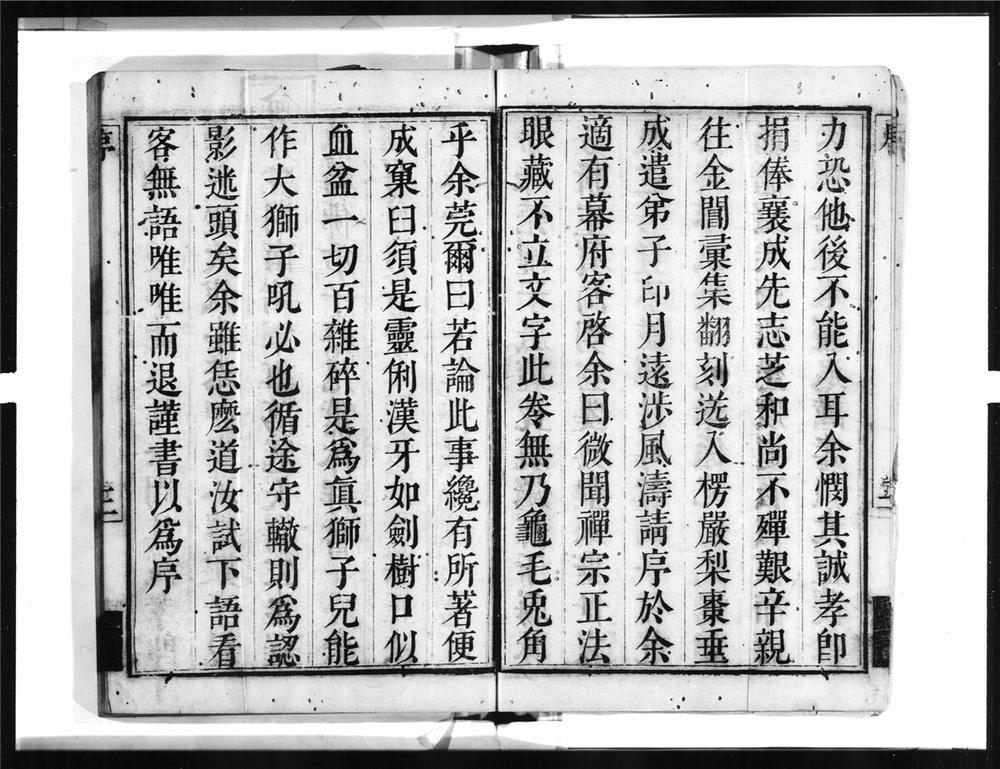 力恐他後不能入耳余憫其誠孝即
捐俸襄成先志芝和尚不殫艱辛親
往金閶彙集翻刻送入楞嚴梨棗垂
成遣弟子印月遠涉風濤請序於余
適有幕府客啓余曰微聞禪宗正法
眼藏不立文字此卷無乃龜毛兎角
乎余莞爾曰若論此事纔有所著便
成窠臼須是靈俐漢牙如劍樹口似
血盆一切百雜碎是爲眞獅子兒能
作大獅子吼必也循途守轍則爲認
影迷頭矣余雖恁麽道汝試下語看
客無語唯唯而退謹書以爲序
序